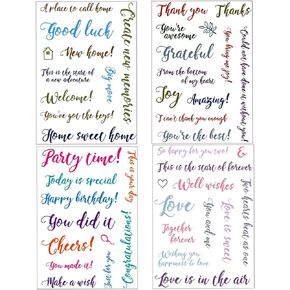 A place to call home
Good luck
New home!
This is the start of
a new adventure
Big move
Welcome!
You've got the keys!
Home sweet home
Create new memories
Thank you
Thanks
You're
awesome
You bring me joy
Grateful
From the bottom
of my heart
Joy
Amazing!
I can't thank you enough
You're the best!
Could not have done it without you!
Party time!
Today is special
Happy birthday!
You did it
Cheers!
You made it!
Just for you
Make a wish
This is your day
Congratulations!
So happy for you two!
This is the start of forever
Well wishes
Love
You and me
Together
forever
Love is sweet
Wedding
happiness
Two hearts beat as one
Love is in the air